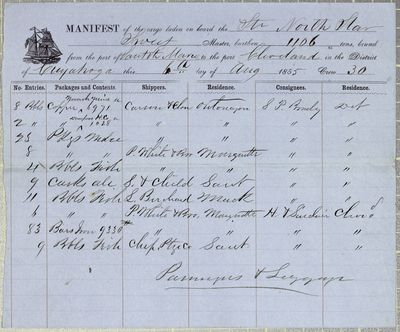 MANIFEST of the cargo laden on board the Str North Star
Sweet Master, burthen 1106 tons, bound
from the port of Sault Marie to the port Cleveland in the District
of Cuyahoga this 6th day of Aug 1855 Crew 30
No. Entries. Packages and Contents. Shippers. Residence. Consignees. Residence.
8 Bbls Copper 1971 Carson & Ontonagon S P Brady Det
2 " 1028 " " " "
23 Pkgs Mdse " " " "
8 " P. White & Bro Marquette " "
4 Bbls Fish " " " "
9 Casks ale S. & Child Saut " "
11 Bbls Fish S. Birchard Mack " "
6 " P. White & Bro. Marquette H. Cleved
83 Bars Iron 9330 # " " " "
9 Bbls Fish Chip Saut " "
Passengers & Luggage